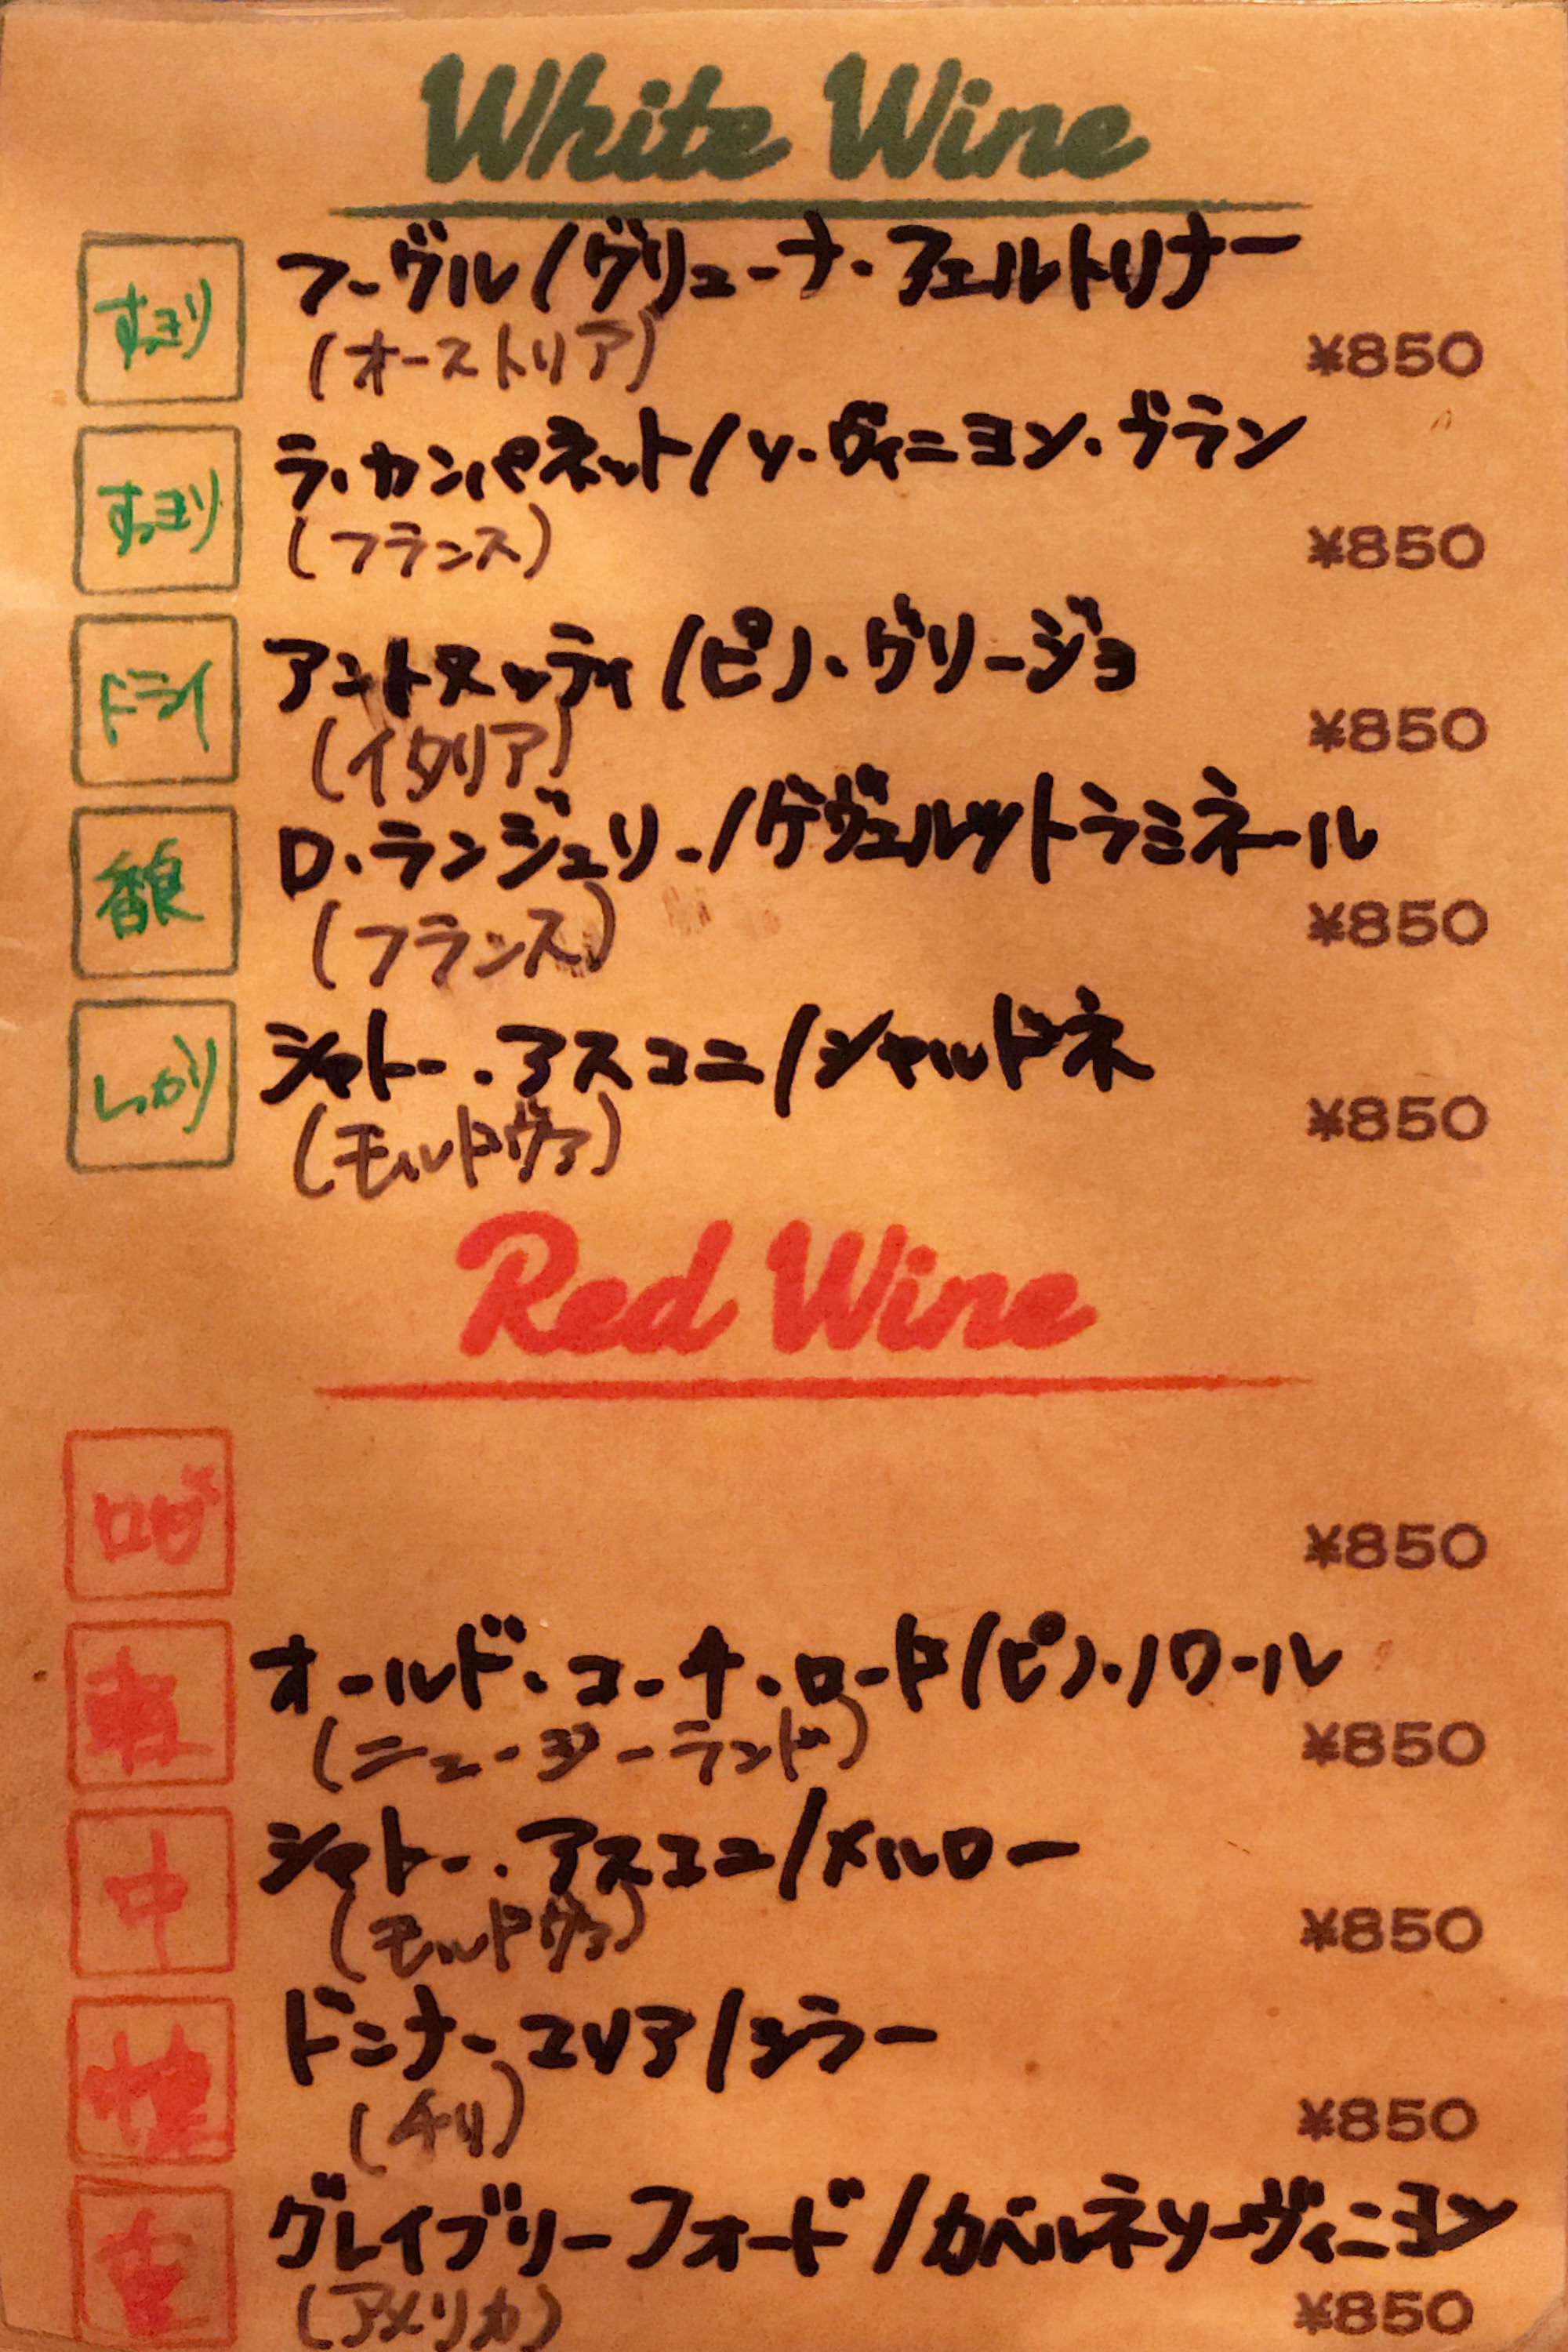 White Wine
すっきり
フーグル/グリューナ・フェルトリナー
(オーストリア)
¥850
すっきり
ラ・カンパネット/ソーヴィニヨン・ブラン
(フランス)
¥850
ドライ
アントヌッティ/ピノ・グリージョ
(イタリア)
¥850
香良
D・ランジュリー/ゲヴェルツトラミネール
(フランス)
¥850
しっかり
シャトー・アスコニ/シャルドネ
(モルドヴァ)
¥850
Red Wine
ロゼ
¥850
軽
オールド・コーチ・ロード/ピノ・ノワール
(ニュージーランド)
¥850
中
シャトー・アスコニ/メルロー
(モルドヴァ)
¥850
ドミナ
シラー
(チリ)
¥850
重
グレイブリーフォード/カベルネソーヴィニヨン
(アメリカ)
¥850